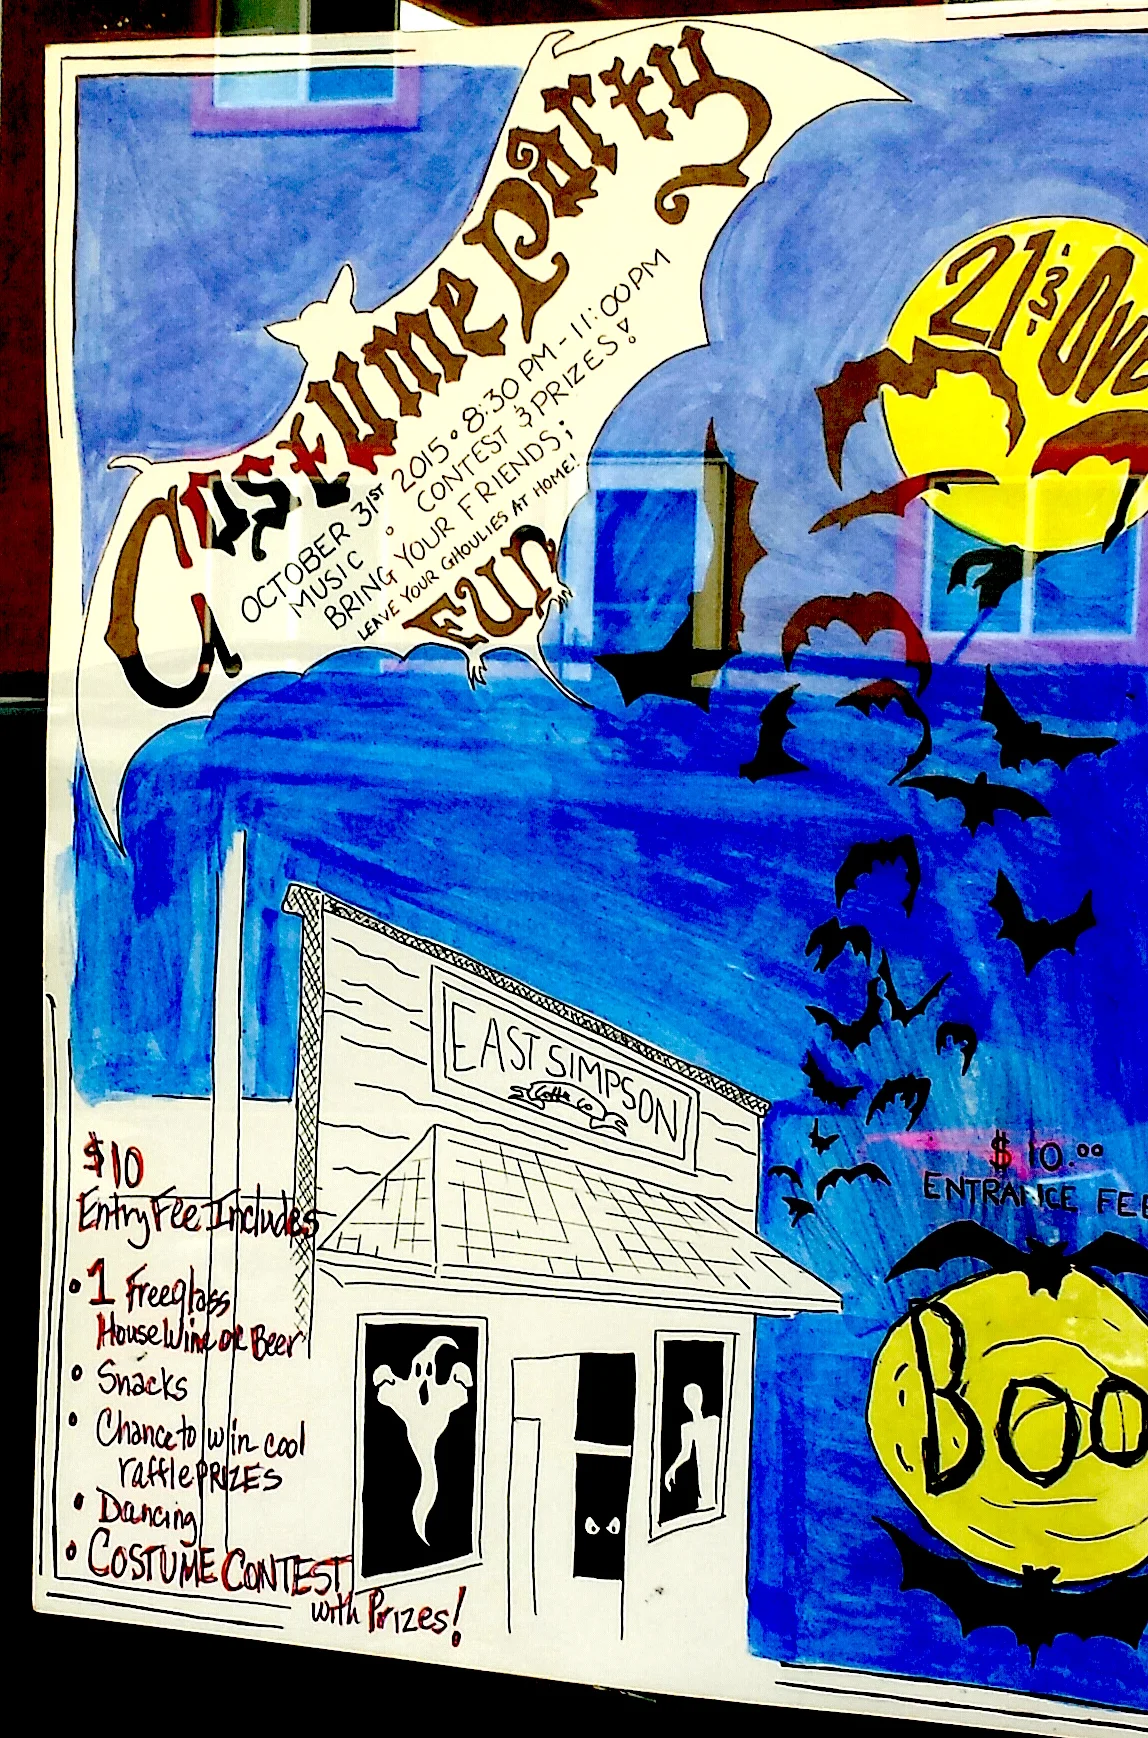 Costume Party
OCTOBER 31ST 2015 • 8:30 PM - 11:00 PM
MUSIC • CONTEST & PRIZES!
BRING YOUR FRIENDS;
LEAVE YOUR GHOULIES AT HOME!
FUN
21 & Ove
EAST SIMPSON
Coffee Co.
$10.00
ENTRANCE FEE
Boo
$10
Entry Fee Includes
• 1 Free glass
House Wine or Beer
• Snacks
• Chance to win cool
raffle PRIZES
• Dancing
• COSTUME CONTEST
with Prizes!